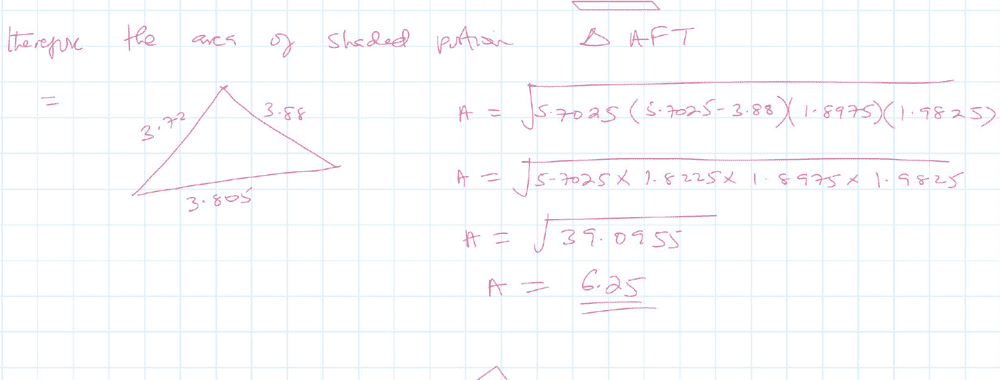 therefore the area of shaded portion △ AFT
=
3.72
3.88
3.805
A = √5.7025 (5.7025-3.88)(1.8975)(1.9825)
A = √5.7025 x 1.8225 x 1.8975 x 1.9825
A = √39.0955
A = 6.25